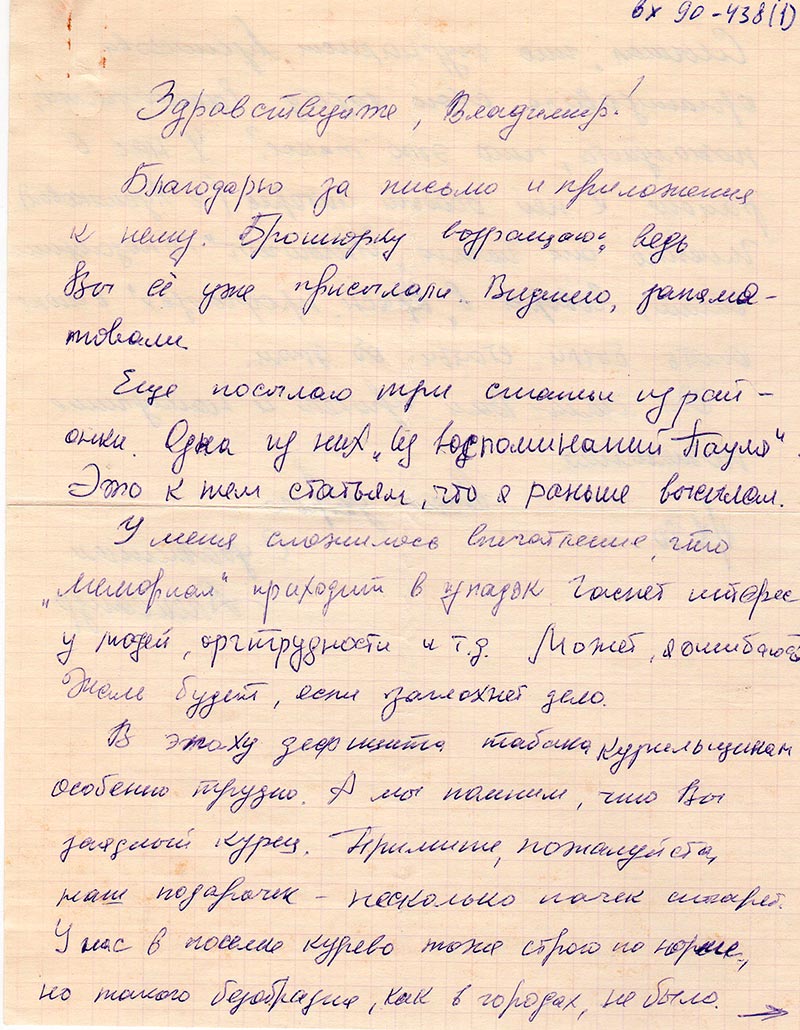 вх 90-438(1)
Здравствуйте, Владимир!
Благодарю за письмо и приложения
к нему. Брошюрку возвращаю: ведь
Вы её уже присылали. Видимо, запамя-
товали.
Еще посылаю три статьи из рай-
онки. Одна из них „Из воспоминаний Пауля".
Это к тем статьям, что я раньше высылал.
У меня сложилось впечатление, что
„Мемориал" приходит в упадок. Гаснет интерес
у людей, оргтрудности и т.д. Может, я ошибаюсь.
Жаль будет, если заглохнет дело.
В эпоху дефицита табака курильщикам
особенно трудно. А мы помним, что Вы
заядлый курец. Примите, пожалуйста,
наш подарочек – несколько пачек сигарет.
У нас в поселке курево тоже строго по норме,
но такого безобразия, как в городах, не было. →